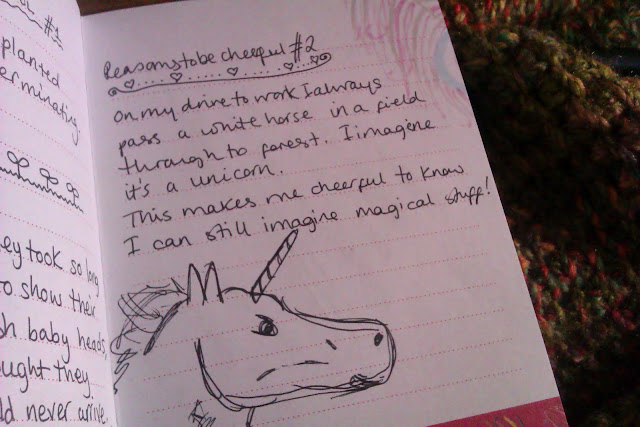 #1
planted
erminating.
ey took so long
to show their
sh baby heads,
ought they
ld never arrive.
Reasons to be cheerful #2
On my drive to work I always
pass a white horse in a field
through to forest. I imagene
it's a unicorn.
This makes me cheerful to know
I can still imagine magical stuff!